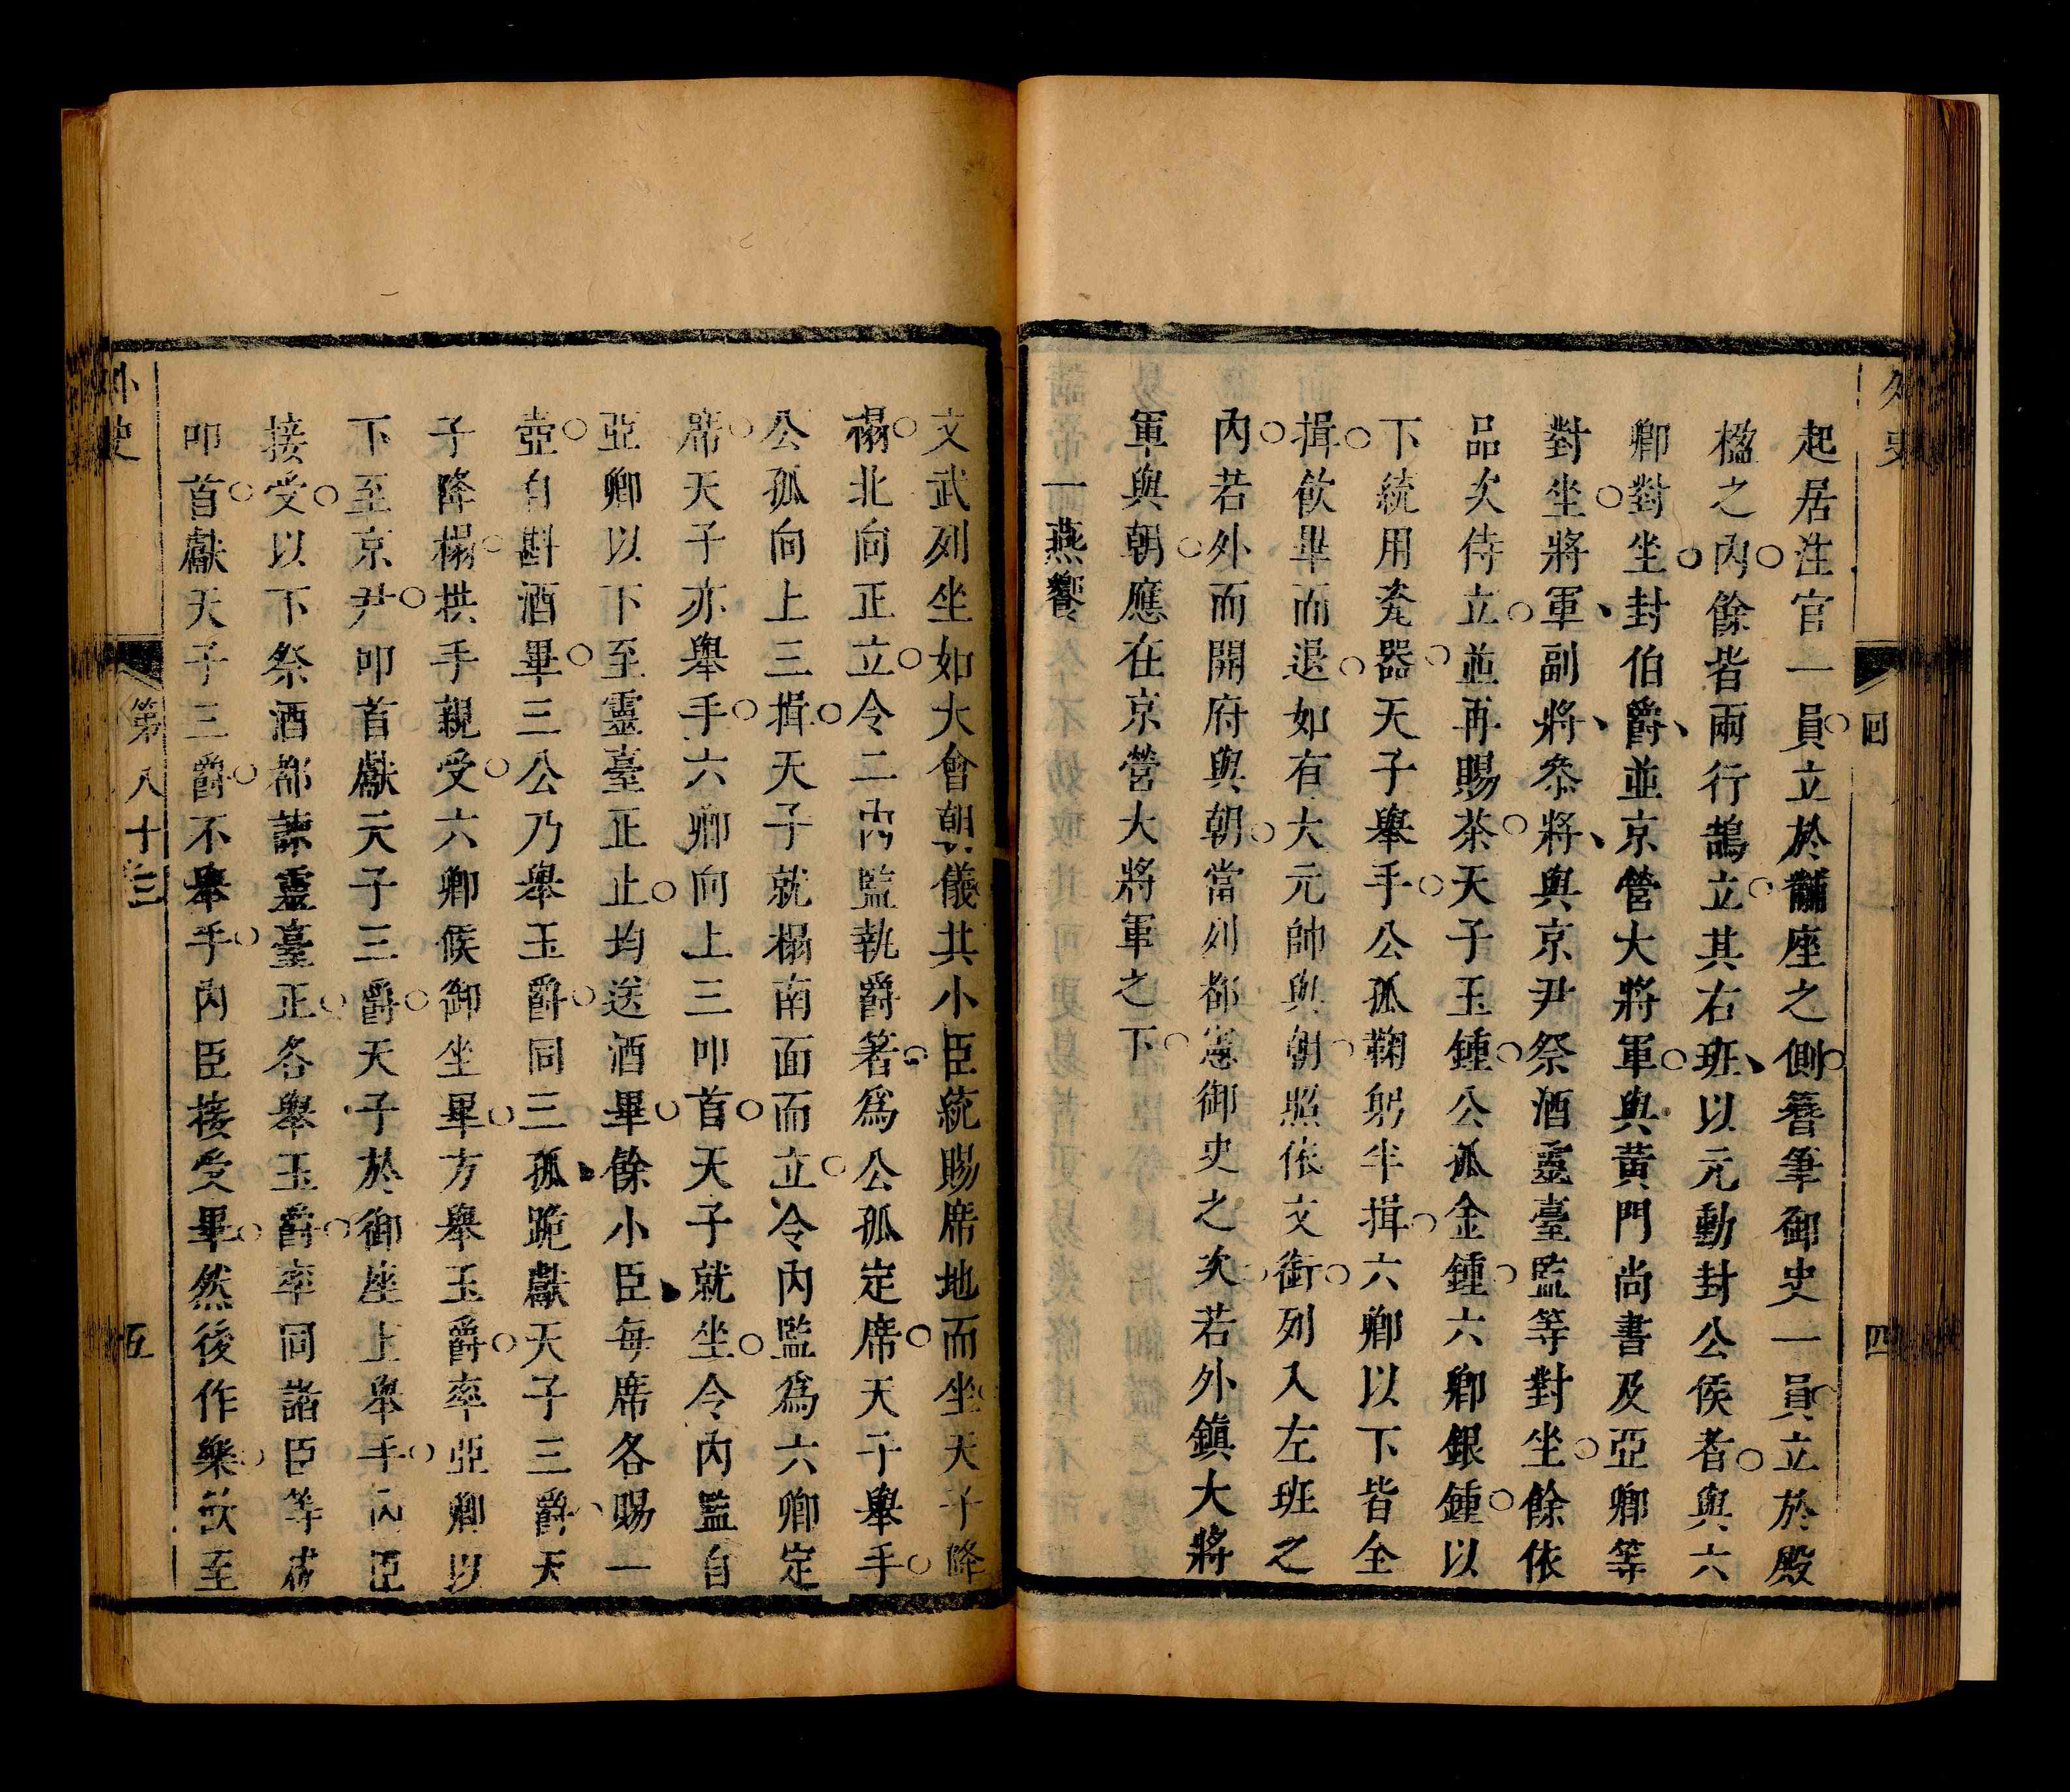 外史
回
四
起居注官一員立於黼座之側簪筆御史一員立於殿
楹之內餘皆兩行鵠立其右班以元勳封公侯者與六
卿對坐封伯爵並京營大將軍與黃門尚書及亞卿等
對坐將軍副將叅將與京尹祭酒靈臺監等對坐餘依
品次侍立並再賜茶天子玉鍾公孤金鍾六卿銀鍾以
下統用瓷器天子舉手公孤鞠躬半揖六卿以下皆全
揖飲畢而退如有大元帥與朝照依文銜列入左班之
內若外而開府與朝當列都憲御史之次若外鎮大將
軍與朝應在京營大將軍之下
一燕饗
文武列坐如大會朝儀共小臣統賜席地而坐天子降
榻北向正立令二內監執爵箸為公孤定席天子舉手
公孤向上三揖天子就榻南面而立令內監為六卿定
席天子亦舉手六卿向上三叩首天子就坐令內監自
亞卿以下至靈臺正止均送酒畢餘小臣每席各賜一
壺自斟酒畢三公乃舉玉爵同三孤跪獻天子三爵天
子降榻拱手親受六卿候御坐畢方舉玉爵率亞卿以
下至京尹叩首獻天子三爵天子於御座上舉手內臣
接受以下祭酒都諫靈臺正各舉玉爵率同諸臣等成
叩首獻天子三爵不舉手內臣接受畢然後作樂飲至
外史
第八十三
五